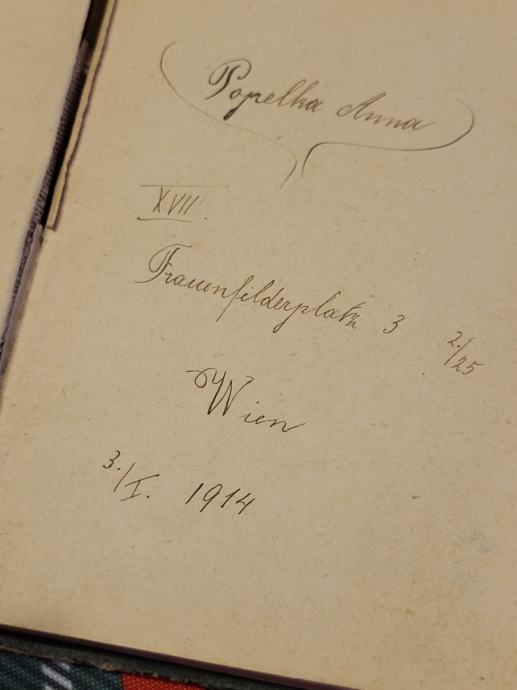 Popelka Anna
XVII.
Frauenfelderplatz 3 2./25
Wien
3./I. 1914